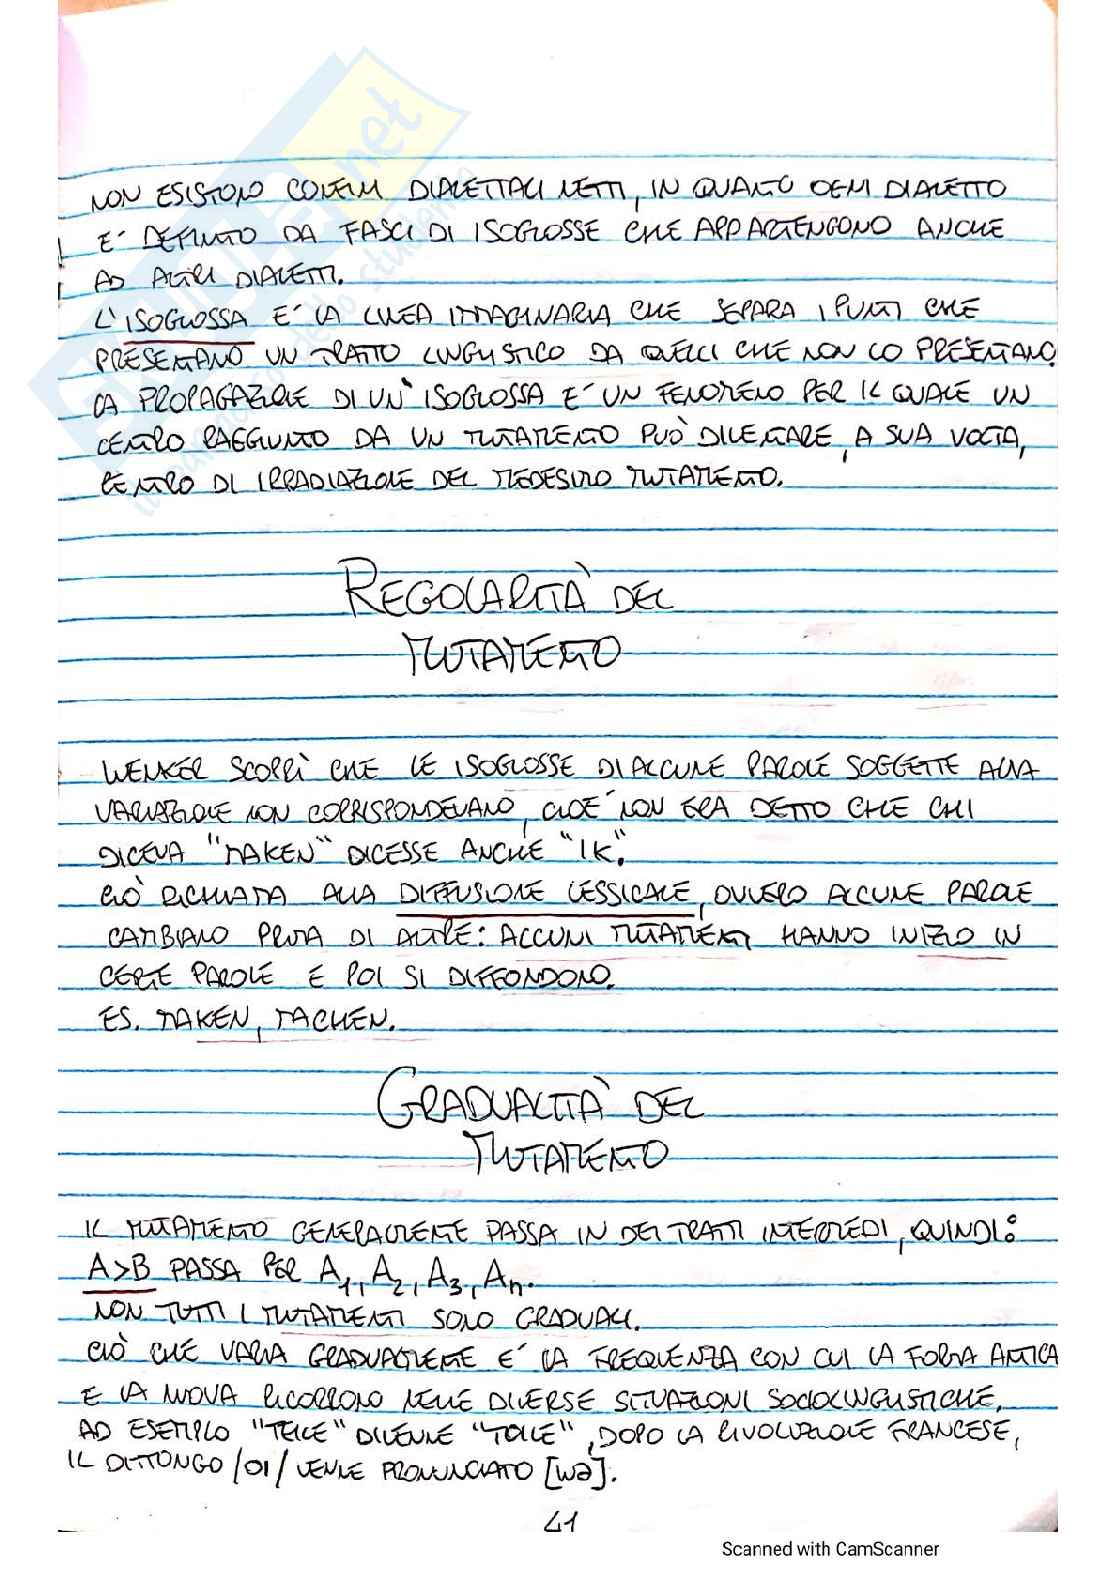 NON ESISTONO CONFINI DIALETTALI NETTI, IN QUANTO OGNI DIALETTO
E' DEFINITO DA FASCI DI ISOGLOSSE CHE APPARTENGONO ANCHE
AD ALTRI DIALETTI.
L'ISOGLOSSA E' LA LINEA IMMAGINARIA CHE SEPARA I PUNTI CHE
PRESENTANO UN TRATTO LINGUISTICO DA QUELLI CHE NON LO PRESENTANO.
LA PROPAGAZIONE DI UN'ISOGLOSSA E' UN FENOMENO PER IL QUALE UN
CENTRO RAGGIUNTO DA UN MUTAMENTO PUÒ DIVENTARE, A SUA VOLTA,
CENTRO DI IRRADIAZIONE DEL MEDESIMO MUTAMENTO.
REGOLARITÀ DEL
MUTAMENTO
WENKER SCOPRÌ CHE LE ISOGLOSSE DI ALCUNE PAROLE SOGGETTE ALLA
VARIAZIONE NON CORRISPONDEVANO, CIOE' NON ERA DETTO CHE CHI
DICEVA "MAKEN" DICESSE ANCHE "IK".
CIÒ RICHIAMA ALLA DIFFUSIONE LESSICALE, OVVERO ALCUNE PAROLE
CAMBIANO PRIMA DI ALTRE: ALCUNI MUTAMENTI HANNO INIZIO IN
CERTE PAROLE E POI SI DIFFONDONO.
ES. MAKEN, MACHEN.
GRADUALITÀ DEL
MUTAMENTO
IL MUTAMENTO GENERALMENTE PASSA IN DEI TRATTI INTERMEDI, QUINDI:
A>B PASSA PER A1, A2, A3, An.
NON TUTTI I MUTAMENTI SONO GRADUALI.
CIÒ CHE VARIA GRADUALMENTE E' LA FREQUENZA CON CUI LA FORMA ANTICA
E LA NUOVA RICORRONO NELLE DIVERSE SITUAZIONI SOCIOLINGUISTICHE.
AD ESEMPIO "TEILE" DIVENNE "TOILE", DOPO LA RIVOLUZIONE FRANCESE,
IL DITTONGO /OI/ VENNE PRONUNCIATO [wa].
41
Scanned with CamScanner